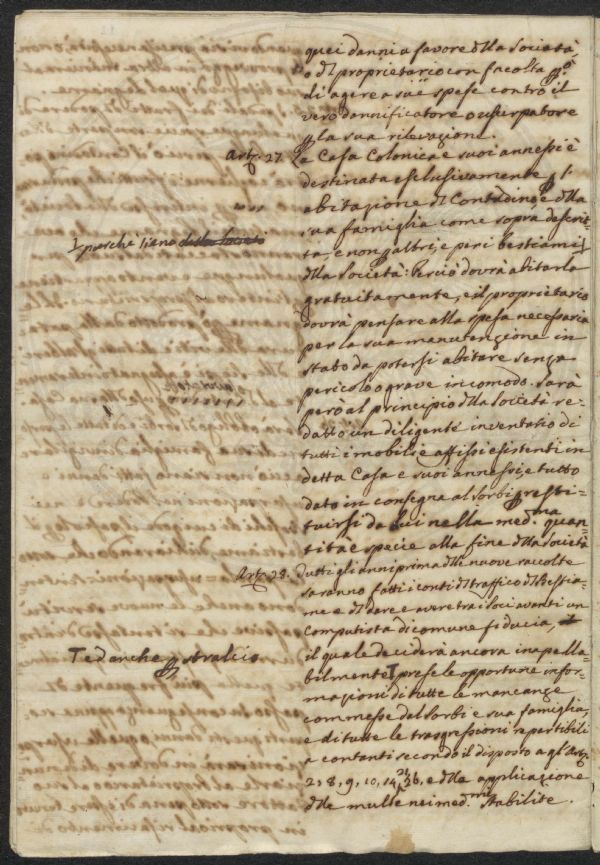 quei danni a favore dlla Società
o dl proprietario con facoltà
di agere a sue spese contro il
vero dannificatore o usurpatore
la sua rilevazione.
Art. 27. La Casa Colonica e suoi annessi è
destinata esclusivamente
abitazione dl Contadino, e dlla
sua famiglia come sopra descrit-
ta, e non altri, e per i bestiami
purchè siano
dlla Società: Perciò dovrà abitarla
gratuitamente, e il proprietario
dovrà pensare alla spesa necessaria
per la sua manutenzione in
stato da potersi abitare senza
pericolo o grave incomodo. Sarà
però al principio dlla Società re-
datto un diligente inventario di
tutti i mobili e affissi esistenti in
detta Casa e suoi annessi, e tutto
dato in consegna al Sorbi resti-
tuirsi da lui nella med.ma quan-
tità e specie alla fine dlla Società
Art. 28. Tutti gli anni prima dlle nuove raccolte
saranno fatti i conti dl traffico dl Bestia-
me e dl dare e avere tra i Soci avanti un
Computista di comune fiducia,
il quale deciderà ancora inapella-
Ted anche stralcio
bilmente T prese le opportune infor-
mazioni di tutte le mancanze
commesse dal Sorbi e sua famiglia,
e di tutte le trasgressioni repartibili
a contanti secondo il disposto a gl'Art.
2, 8, 9, 10, 14, 26, e dlla applicazione
dlle multe nei med.mi stabilite.